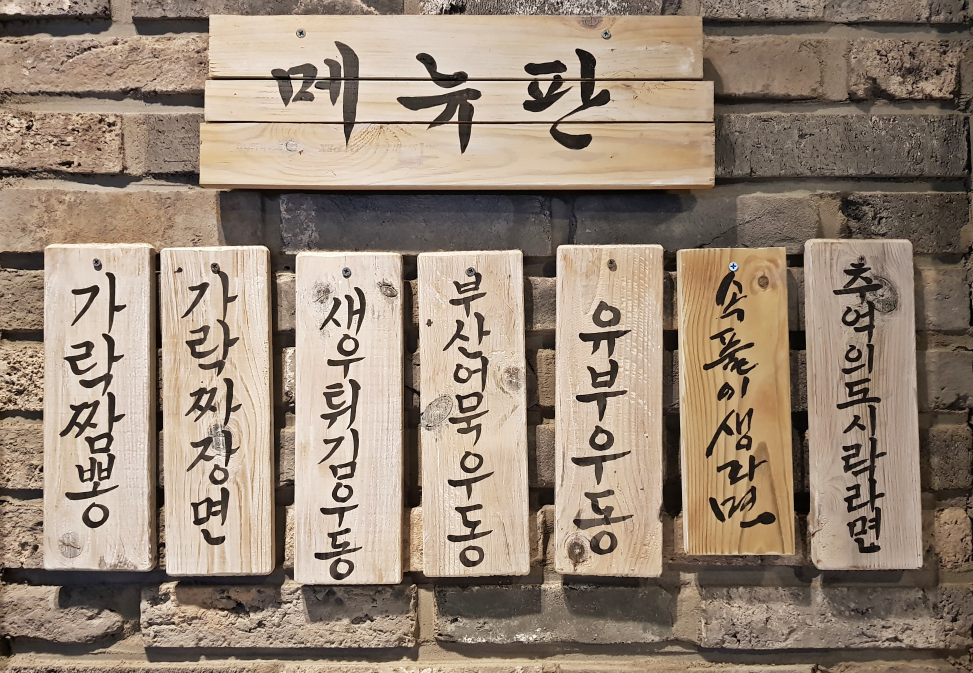 메뉴판
가락짬뽕
가락짜장면
새우튀김우동
부산어묵우동
유부우동
속풀이생라면
추억의도시락라면